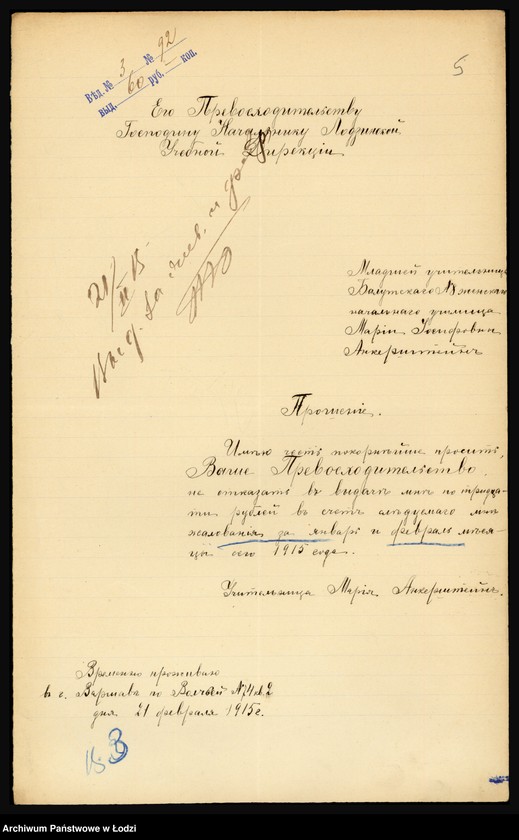 Вѣд. № 3 № 92
выд. 60 руб. — коп.
5
Его Превосходительству
Господину Начальнику Лодзинской
Учебной Дирекціи
21/II 15
Выд. за янв. и февр.
Младшей учительницы
Балутскаго женскаго
начальнаго училища
Маріи Іосифовны
Анкерштейнъ
Прошеніе.
Имѣю честь покорнѣйше просить,
Ваше Превосходительство,
не отказать въ выдачѣ мнѣ по тридца-
ти рублей въ счетъ слѣдуемаго мнѣ
жалованія за январь и февраль мѣся-
цы сего 1915 года.
Учительница Марія Анкерштейнъ.
Временно проживаю
въ г. Варшава по Волчьей № 74 кв. 2
дня 21 февраля 1915 г.
Archiwum Państwowe w Łodzi